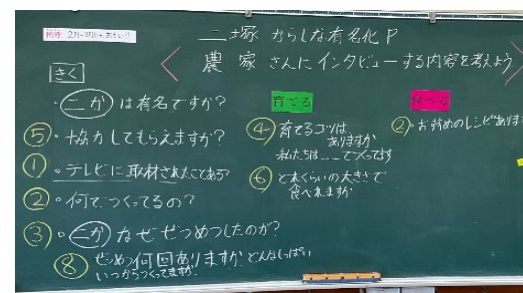 二塚 からしな有名化P
農家さんにインタビューする内容を考えよう
きく
・二か は有名ですか?
⑤・協力してもらえますか?
①・テレビに取材されたことある?
②・何でつくってるの?
③・二か なぜぜつめつしたのか?
⑧ ぜつめつ何回ありますか どんなしっぱい
いつからつくってますか
育てる
④・育てるコツは
ありますか
私たちは
でつくってます
⑥・どれくらいの大きさで
食べれますか
食べる
②・おすすめのレシピありま